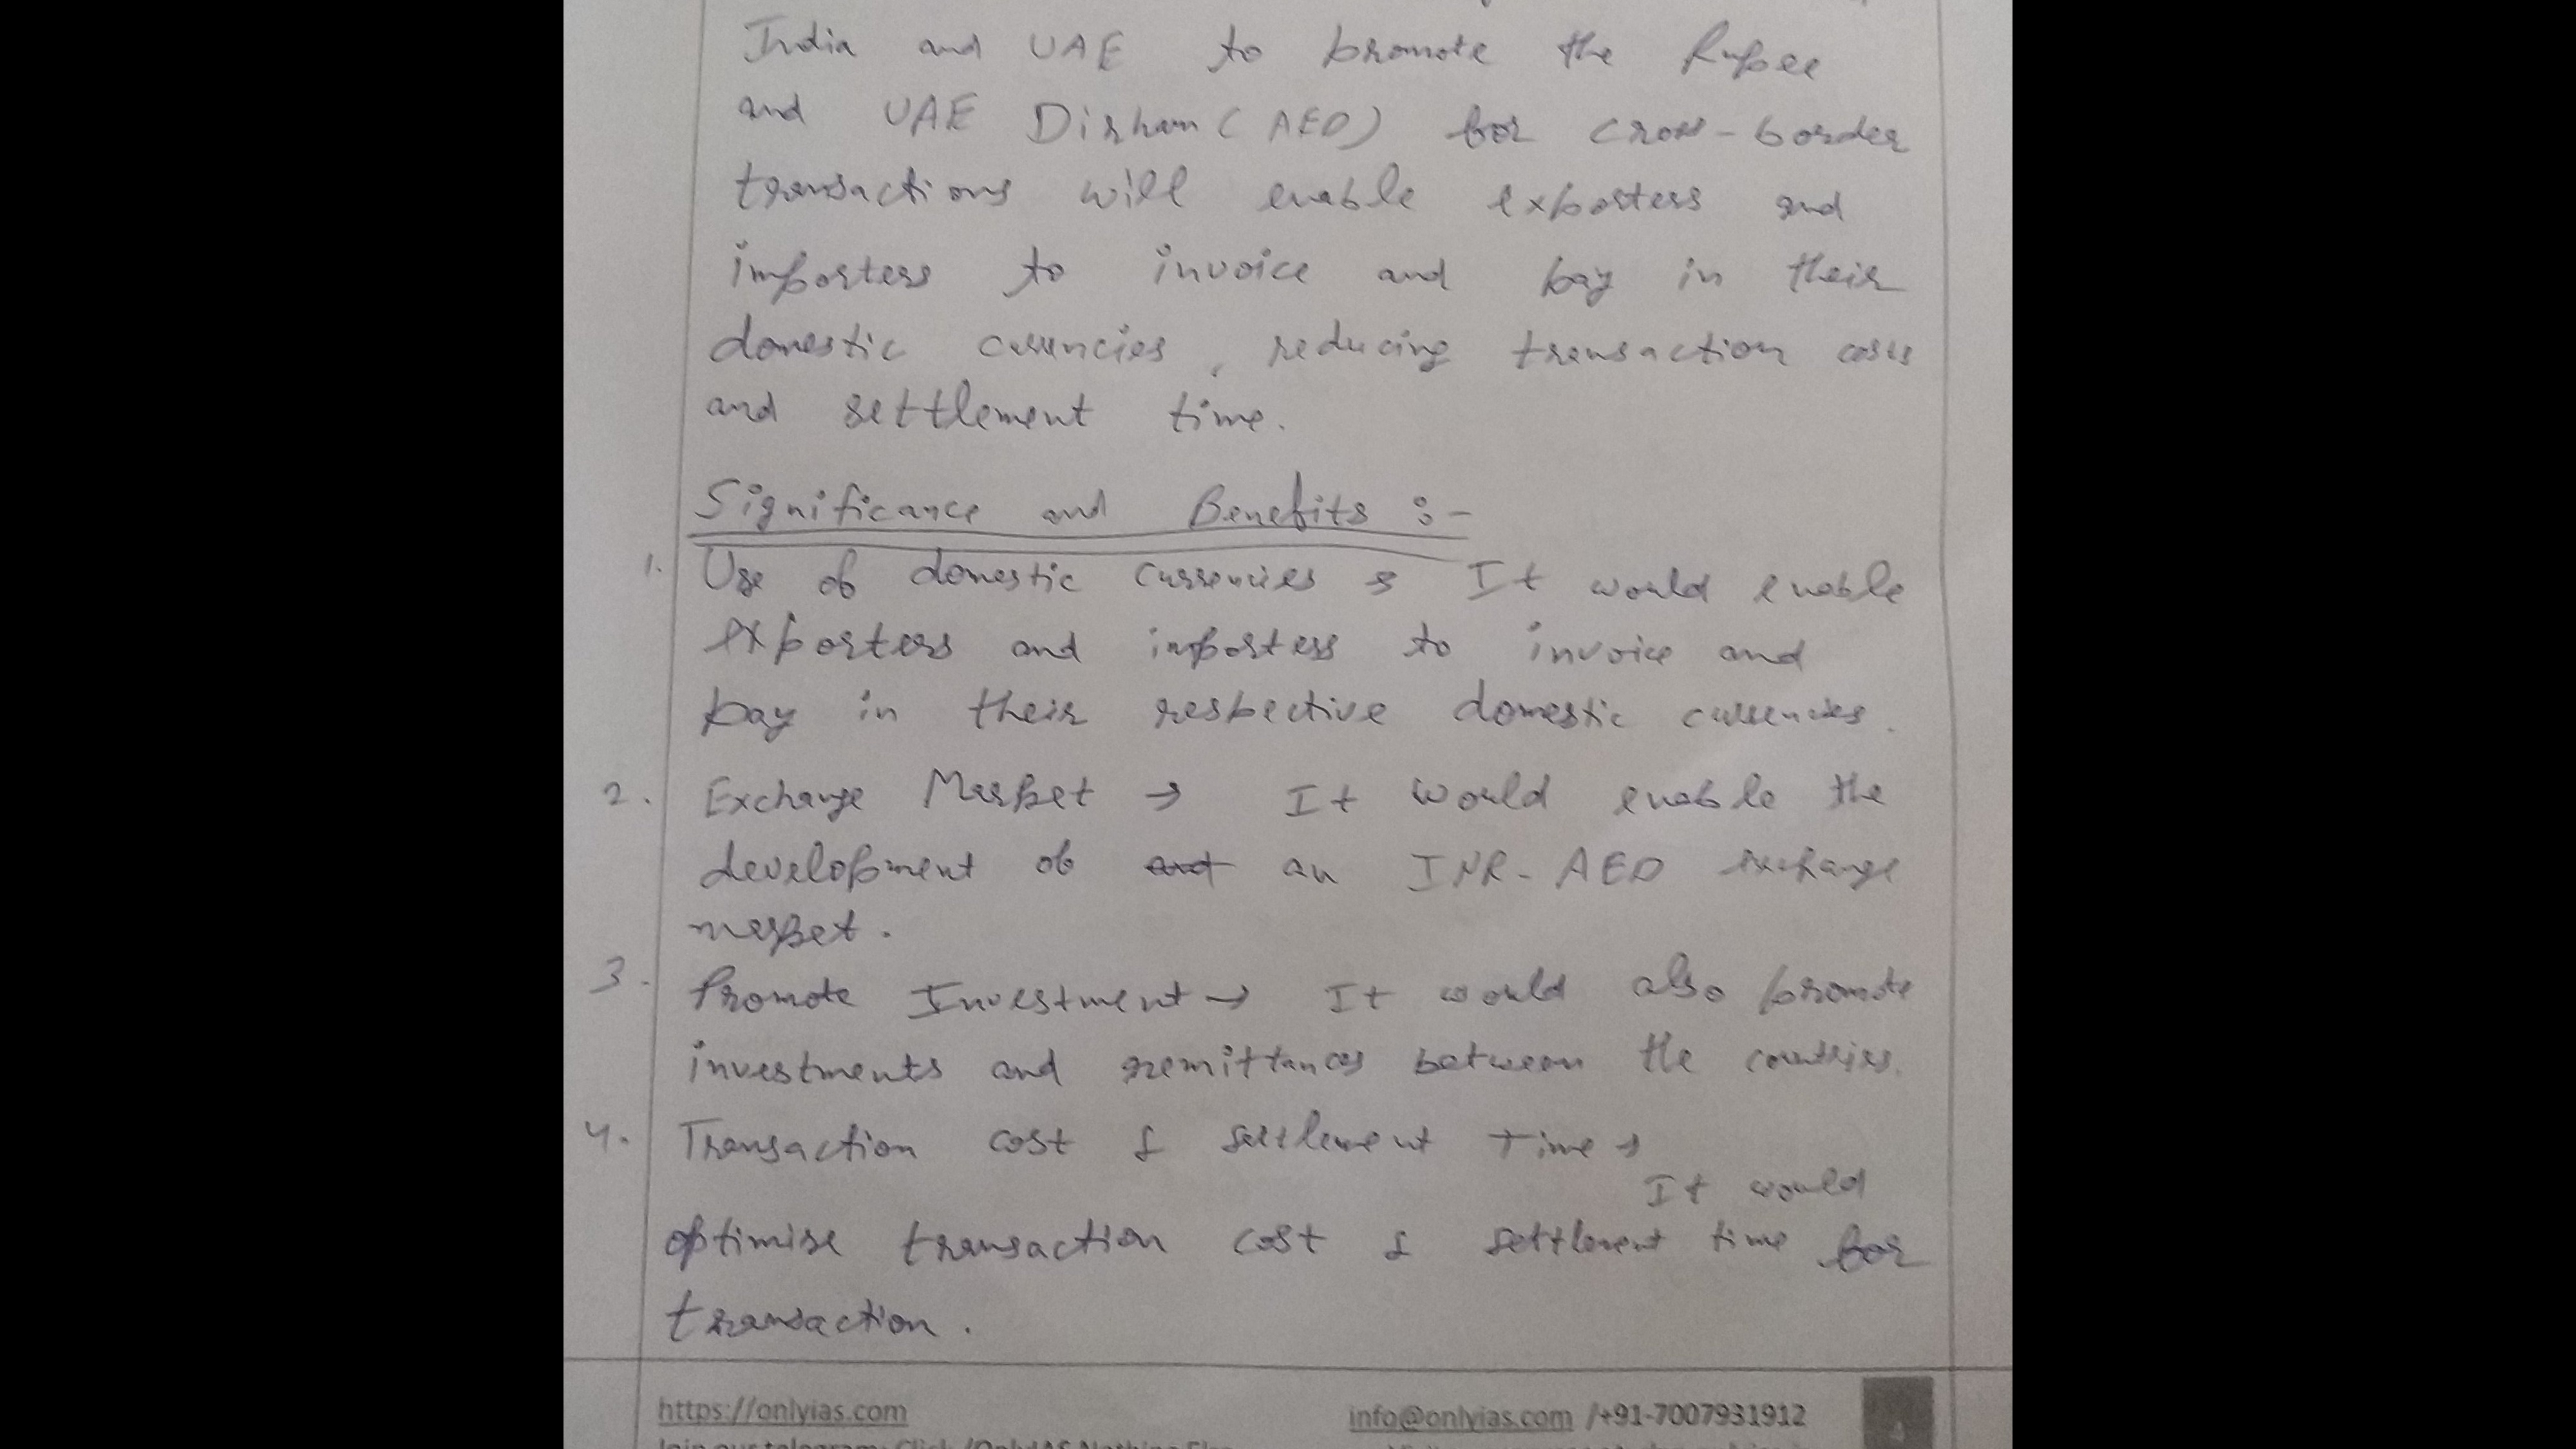 India and UAE to promote the Rupee
and UAE Dirham (AED) for cross-border
transactions will enable exporters and
importers to invoice and pay in their
domestic currencies, reducing transaction costs
and settlement time.
Significance and Benefits :-
1. Use of domestic currencies → It would enable
exporters and importers to invoice and
pay in their respective domestic currencies.
2. Exchange Market → It would enable the
development of an INR-AED exchange
market.
3. Promote Investment → It would also promote
investments and remittances between the countries.
4. Transaction cost & settlement Time →
It would
optimise transaction cost & settlement time for
transaction.
https://onlyias.com info@onlyias.com /+91-7007931912
Join our telegram: Click